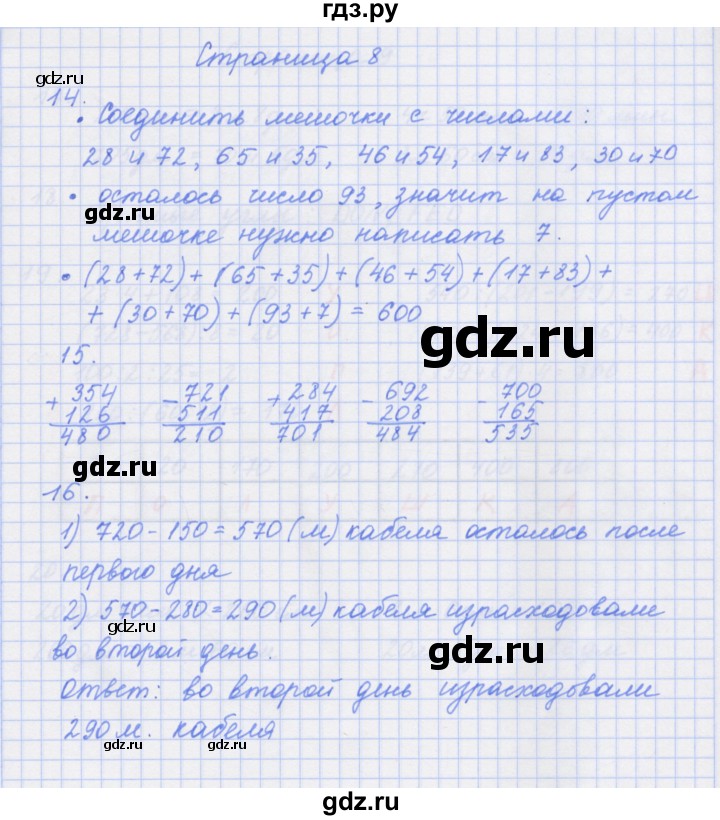 гдз.ру
Страница 8
gdz.ru
14.
• Соединить мешочки с числами:
28 и 72, 65 и 35, 46 и 54, 17 и 83, 30 и 70
• осталось число 93, значит на пустом
gdz.ru
мешочке нужно написать 7.
• (28+72) + (65+35) + (46+54) + (17+83) +
+ (30+70) + (93+7) = 600
gdz.ru
15.
+ 354 - 721 + 284 - 692 - 700
126 511 417 208 165
480 210 701 484 535
gdz.ru
16.
1) 720 - 150 = 570 (м) кабеля осталось после
первого дня
2) 570 - 280 = 290 (м) кабеля израсходовали
gdz.ru
во второй день.
Ответ: во второй день израсходовали
290 м. кабеля
gdz.ru gdz.ru
gdz.ru